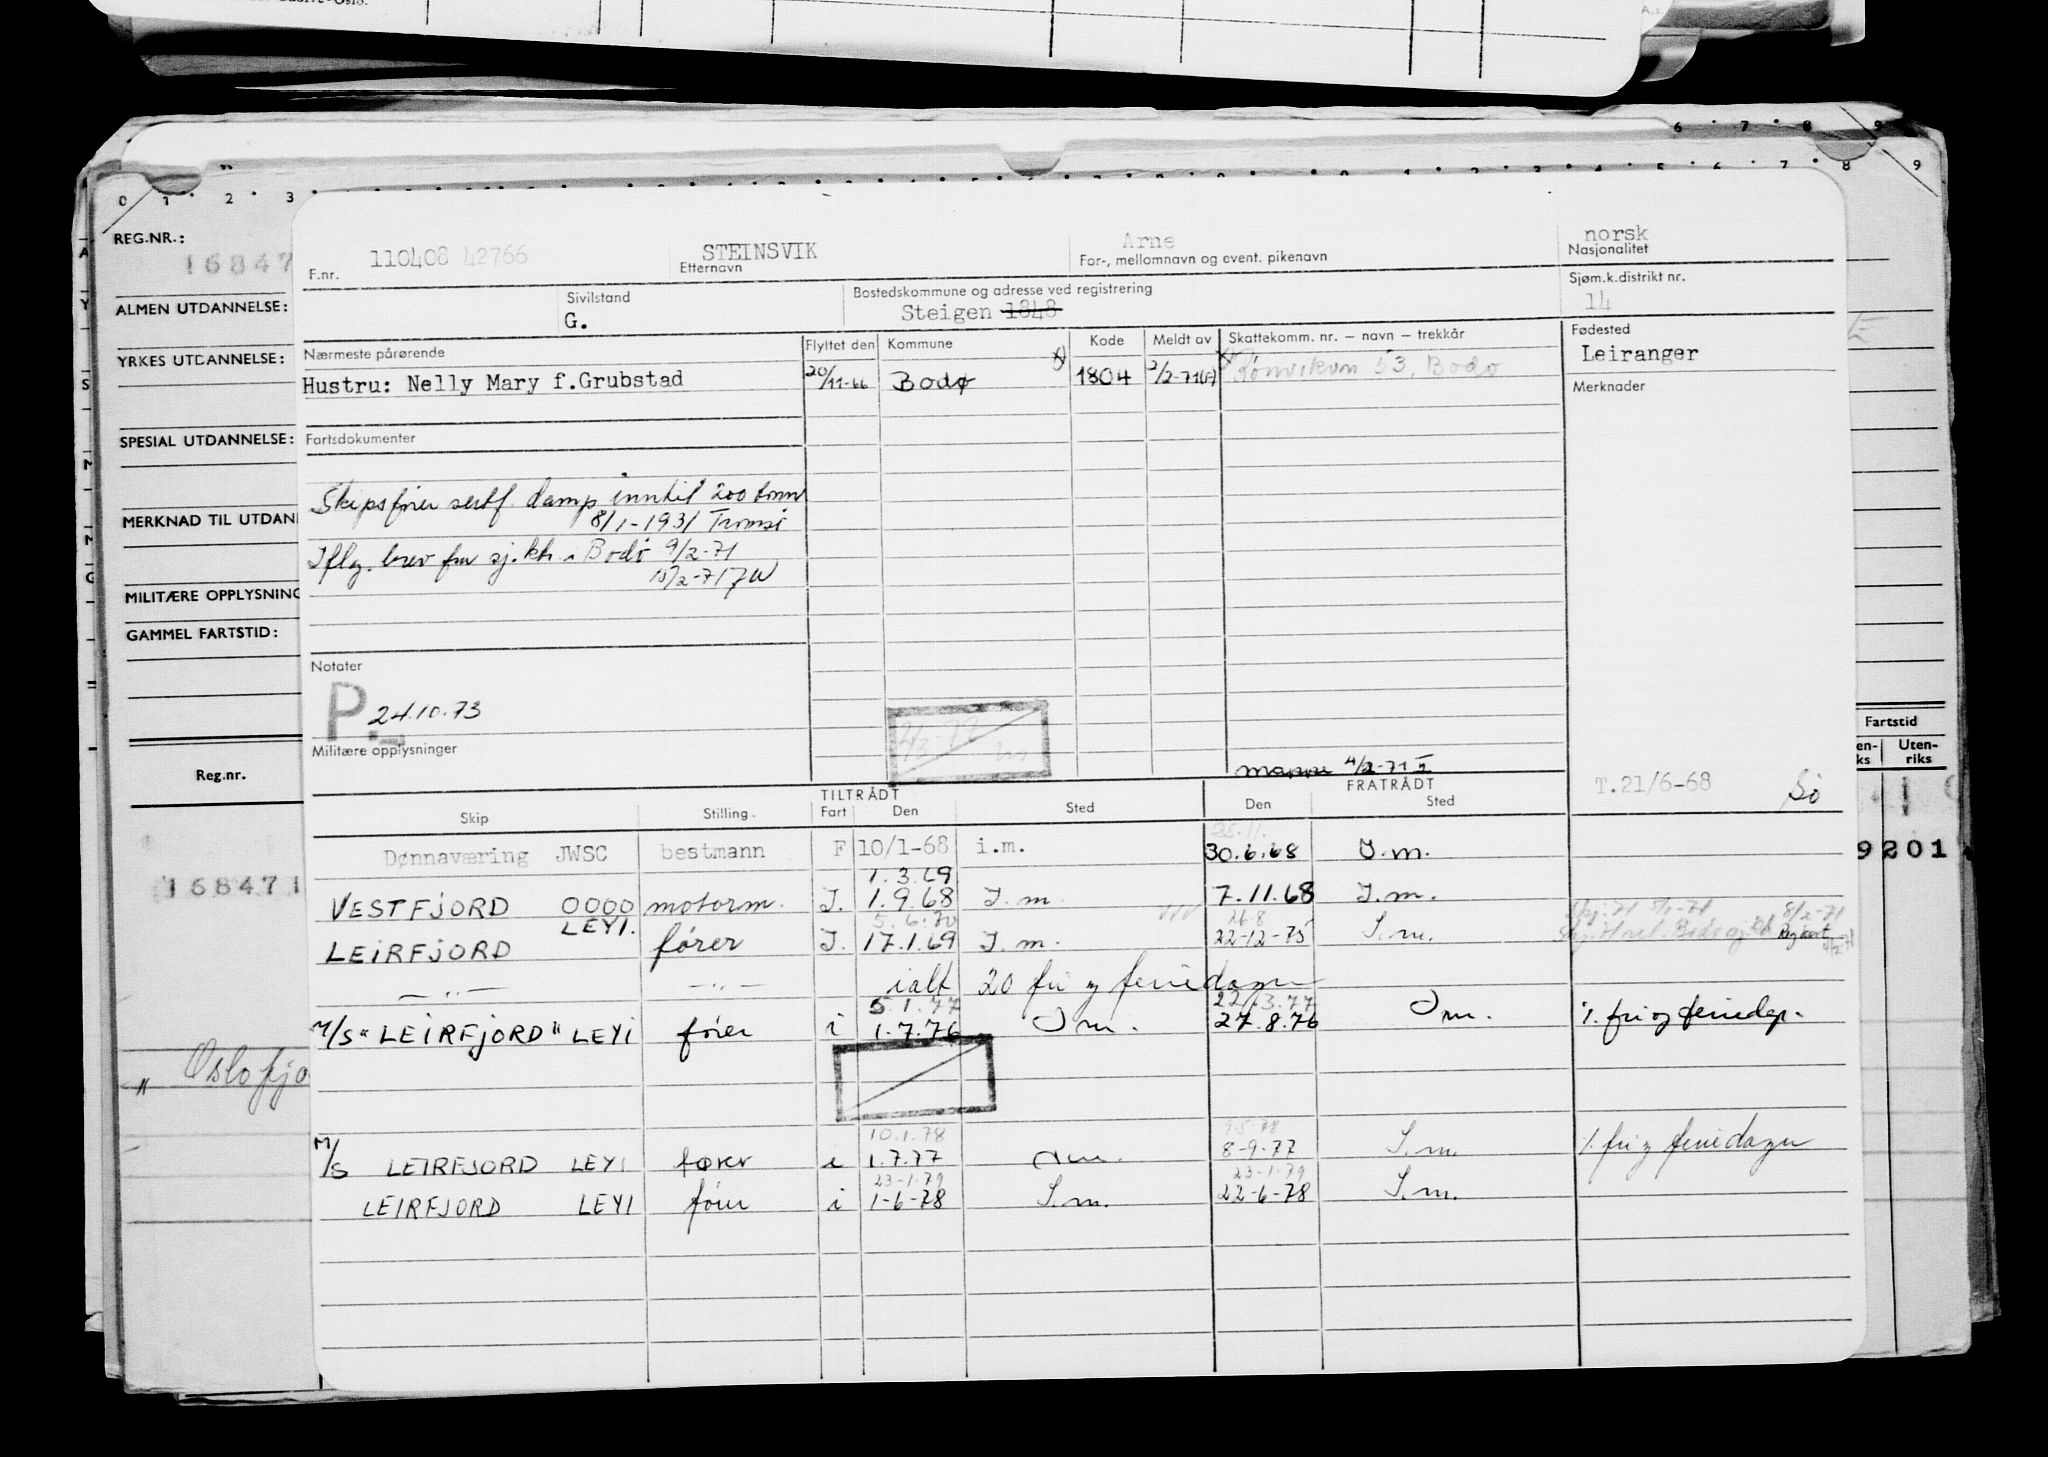 REG.NR.:
16847
110408 42766 STEINSVIK Arne norsk
F.nr. Etternavn For-, mellomnavn og event. pikenavn Nasjonalitet
ALMEN UTDANNELSE:
Sivilstand Bostedskommune og adresse ved registrering Sjøm.k.distrikt nr.
G. Steigen 1848 14
YRKES UTDANNELSE:
Nærmeste pårørende Flyttet den Kommune Kode Meldt av Skattekomm. nr. — navn — trekkår Fødested
Hustru: Nelly Mary f.Grubstad 20/11-66 Bodø x) 1804 Rønvikvn 53, Bodø Leiranger
Merknader
SPESIAL UTDANNELSE:
Fartsdokumenter
Skipsfører sertf. damp inntil 200 tonn
8/1-1931 Tromsø
MERKNAD TIL UTDAN
Iflg. brev fra sj.kt. i Bodø 9/2-71
15/2-71
MILITÆRE OPPLYSNING
GAMMEL FARTSTID:
Notater
P. 24.10.73
Militære opplysninger
4/2-71
T.21/6-68 Sö
Fartstid
Uten-
riks
Reg.nr.
TILTRÅDT FRATRÅDT
Skip Stilling. Fart Den Sted Den Sted
Dønnaværing JWSC bestmann F 10/1-68 i.m. 30.6.68 I.m.
9201
168471
1.3.69
VESTFJORD OOOO motorm. I. 1.9.68 I.m. 7.11.68 I.m.
5.6.70 26.8
LEIRFJORD LEYI. fører I. 17.1.69 I.m. 22-12-75 I.m.
— " — — " — ialt 20 fri og feriedager
5.1.77 22.3.77
M/S "LEIRFJORD" LEYI fører i 1.7.76 Im. 27.8.76 Im. %. fri og feriedg.
" Oslofjo
10.1.78 9.5.78
M/S LEIRFJORD LEYI fører i 1.7.77 Im. 8-9-77 I.m. %. fri og feriedager
23-1-79 23-1-79
LEIRFJORD LEYI fører i 1-6-78 I.m. 22-6-78 I.m.